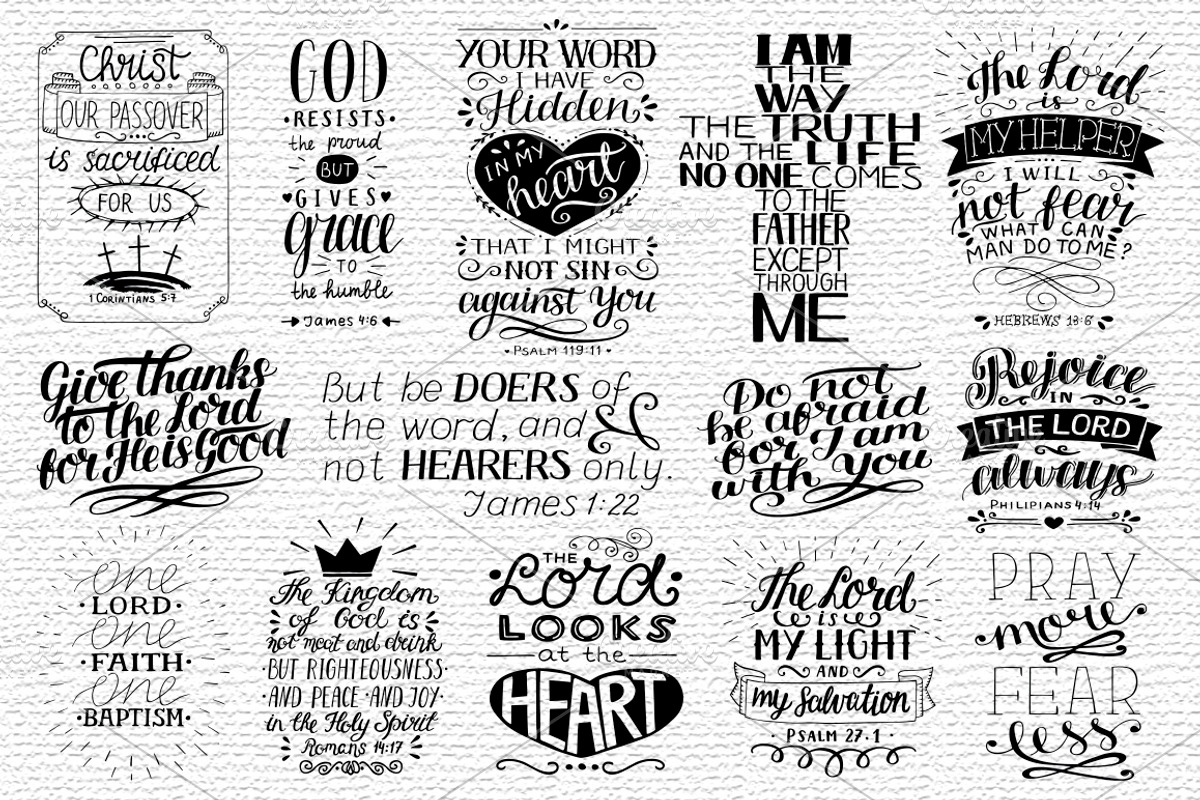 Christ
OUR PASSOVER
is sacrificed
FOR US
1 CORINTIANS 5:7
GOD
RESISTS
the proud
BUT
GIVES
grace
TO
the humble
James 4:6
YOUR WORD
I HAVE
Hidden
IN MY
heart
THAT I MIGHT
NOT SIN
against You
PSALM 119:11
I AM
THE
WAY
THE TRUTH
AND THE LIFE
NO ONE COMES
TO THE
FATHER
EXCEPT
THROUGH
ME
The Lord
is
MY HELPER
I WILL
not fear
WHAT CAN
MAN DO TO ME?
HEBREWS 13:6
Give thanks
to the Lord
for He is Good
But be DOERS of
the word, and
not HEARERS only.
James 1:22
Do not
be afraid
for I am
with You
Rejoice
IN
THE LORD
always
PHILIPIANS 4:14
one
LORD
one
FAITH
one
BAPTISM
The Kingdom
of God is
not meat and drink
BUT RIGHTEOUSNESS
AND PEACE AND JOY
in the Holy Spirit
Romans 14:17
THE
Lord
LOOKS
at the
HEART
The Lord
is
MY LIGHT
AND
my salvation
PSALM 27.1
PRAY
more
FEAR
less